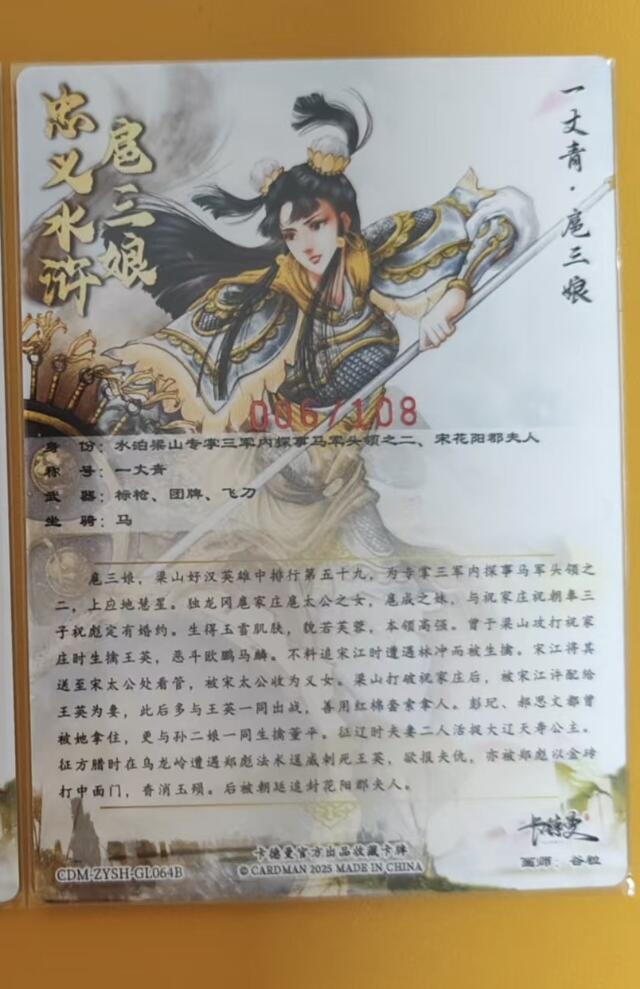 忠义水浒
扈三娘
一丈青·扈三娘
006/108
身 份：水泊梁山专掌三军内探事马军头领之二、宋花阳郡夫人
称 号：一丈青
武 器：标枪、团牌、飞刀
坐 骑：马
扈三娘，梁山好汉英雄中排行第五十九，为专掌三军内探事马军头领之
二，上应地慧星。独龙冈扈家庄扈太公之女，扈成之妹，与祝家庄祝朝奉三
子祝彪定有婚约。生得玉雪肌肤，貌若芙蓉，本领高强。曾于梁山攻打祝家
庄时生擒王英，恶斗欧鹏马麟。不料追宋江时遭遇林冲而被生擒。宋江将其
送至宋太公处看管，被宋太公收为义女。梁山打破祝家庄后，被宋江许配给
王英为妻，此后多与王英一同出战，善用红棉套索拿人。彭玘、郝思文都曾
被她拿住，更与孙二娘一同生擒董平。征辽时夫妻二人活捉大辽天寿公主。
征方腊时在乌龙岭遭遇郑彪法术逞威刺死王英，欲报夫仇，亦被郑彪以金砖
打中面门，香消玉殒。后被朝廷追封花阳郡夫人。
卡德曼
画师：谷粒
卡德曼官方出品收藏卡牌
CDM-ZYSH-GL064B
© CARDMAN 2025 MADE IN CHINA